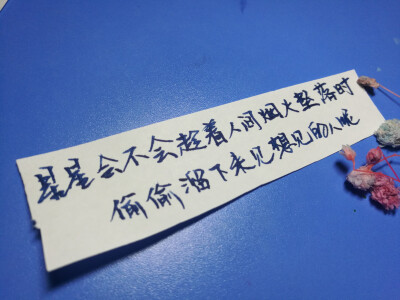 星星会不会趁着人间烟火坠落时
偷偷溜下来见想见的人呢